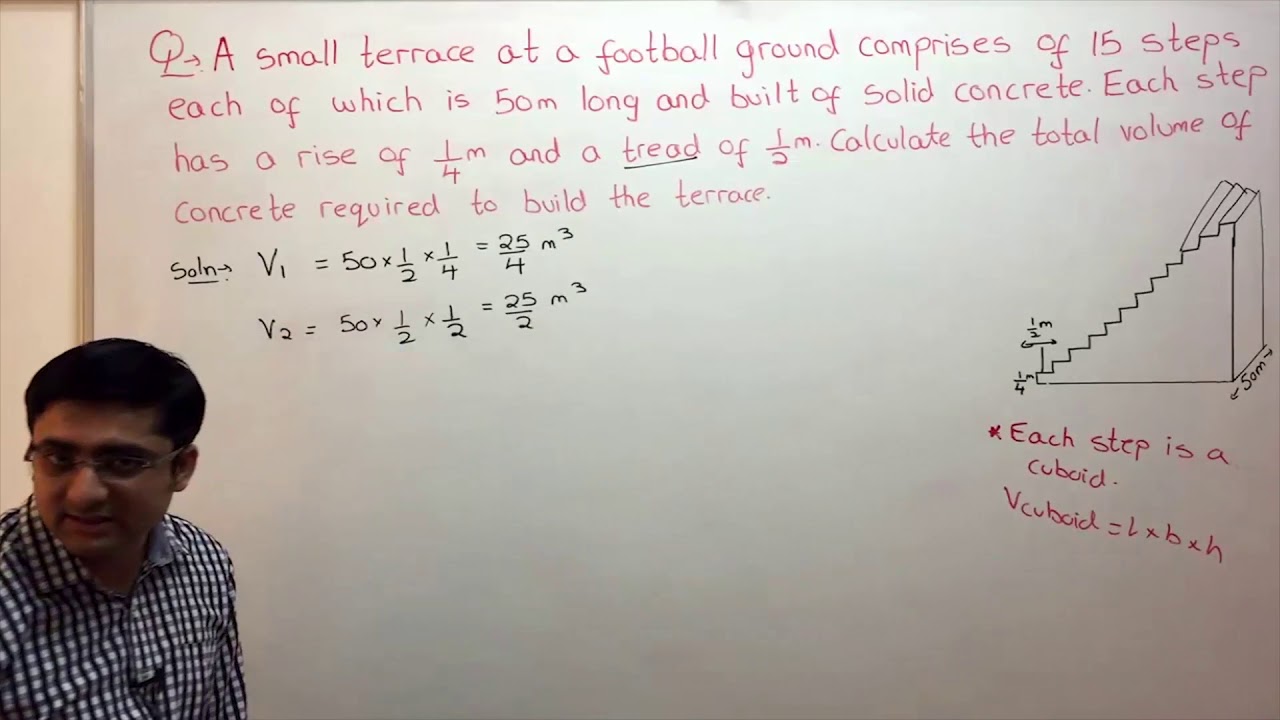 Q→. A small terrace at a football ground comprises of 15 steps
each of which is 50m long and built of solid concrete. Each step
has a rise of 1/4 m and a tread of 1/2 m. Calculate the total volume of
concrete required to build the terrace.
Soln→ V₁ = 50 × 1/2 × 1/4 = 25/4 m³
V₂ = 50 × 1/2 × 1/2 = 25/2 m³
1/2 m
1/4 m
50m
* Each step is a
cuboid.
Vcuboid = l × b × h